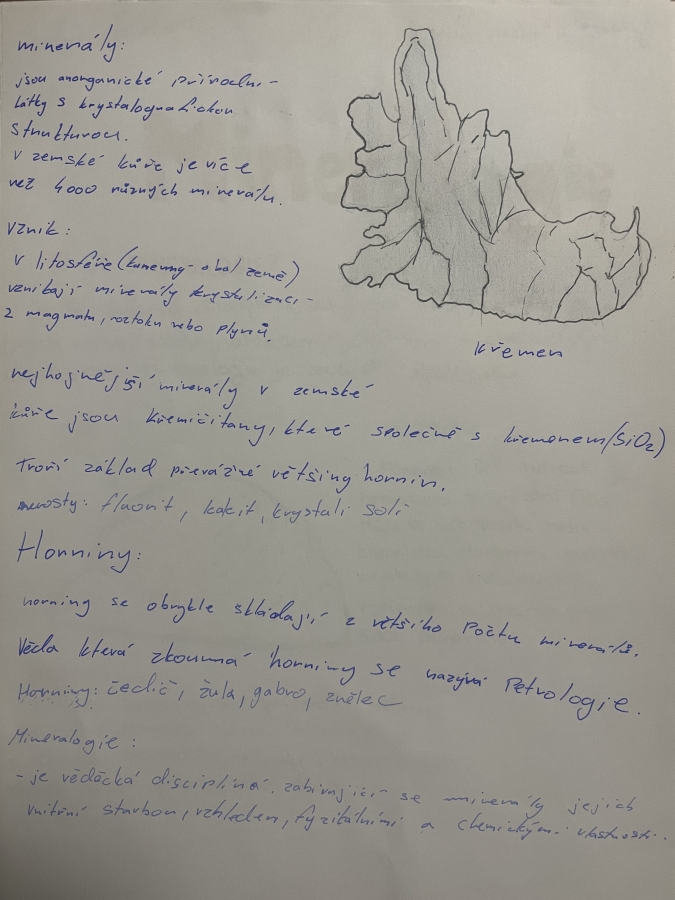 minerály:
jsou anorganické přírodní-
látky s krystalografickou
strukturou.
v zemské kůře je více
než 4000 různých minerálu.
Vznik:
v litosféře (kamenný obal země)
vznikají minerály krystalizací-
z magmatu, roztoku nebo plynů.
Křemen
nejhojnější minerály v zemské
kůře jsou křemičitany, které společně s křemenem (SiO2)
Tvoří základ převážné většiny hornin.
nerosty: fluorit, kalcit, krystali soli
Horniny:
horniny se obvykle skládají z většího Počtu minerálů.
Věda která zkoumá horniny se nazývá Petrologie.
Horniny: čedič, žula, gabro, znělec
Mineralogie:
- je vědecká disciplína zabívající se minerály jejich
vnitřní stavbou, vzhledem, fyzikálními a chemickými vlastnosti.